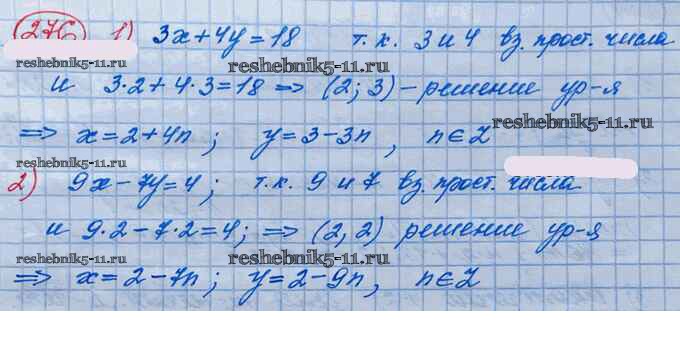 276 1) 3x+4y=18 т.к. 3 и 4 вз. прост. числа
reshebnik5-11.ru reshebnik5-11.ru
и 3·2+4·3=18 => (2; 3) – решение ур-я
reshebnik5-11.ru
=> x=2+4n; y=3-3n, n∈Z
reshebnik5-11.ru
2) 9x-7y=4; т.к. 9 и 7 вз. прост. числа
и 9·2-7·2=4; => (2, 2) решение ур-я
reshebnik5-11.ru reshebnik5-11.ru
=> x=2-7n; y=2-9n, n∈Z
reshebnik5-11.ru